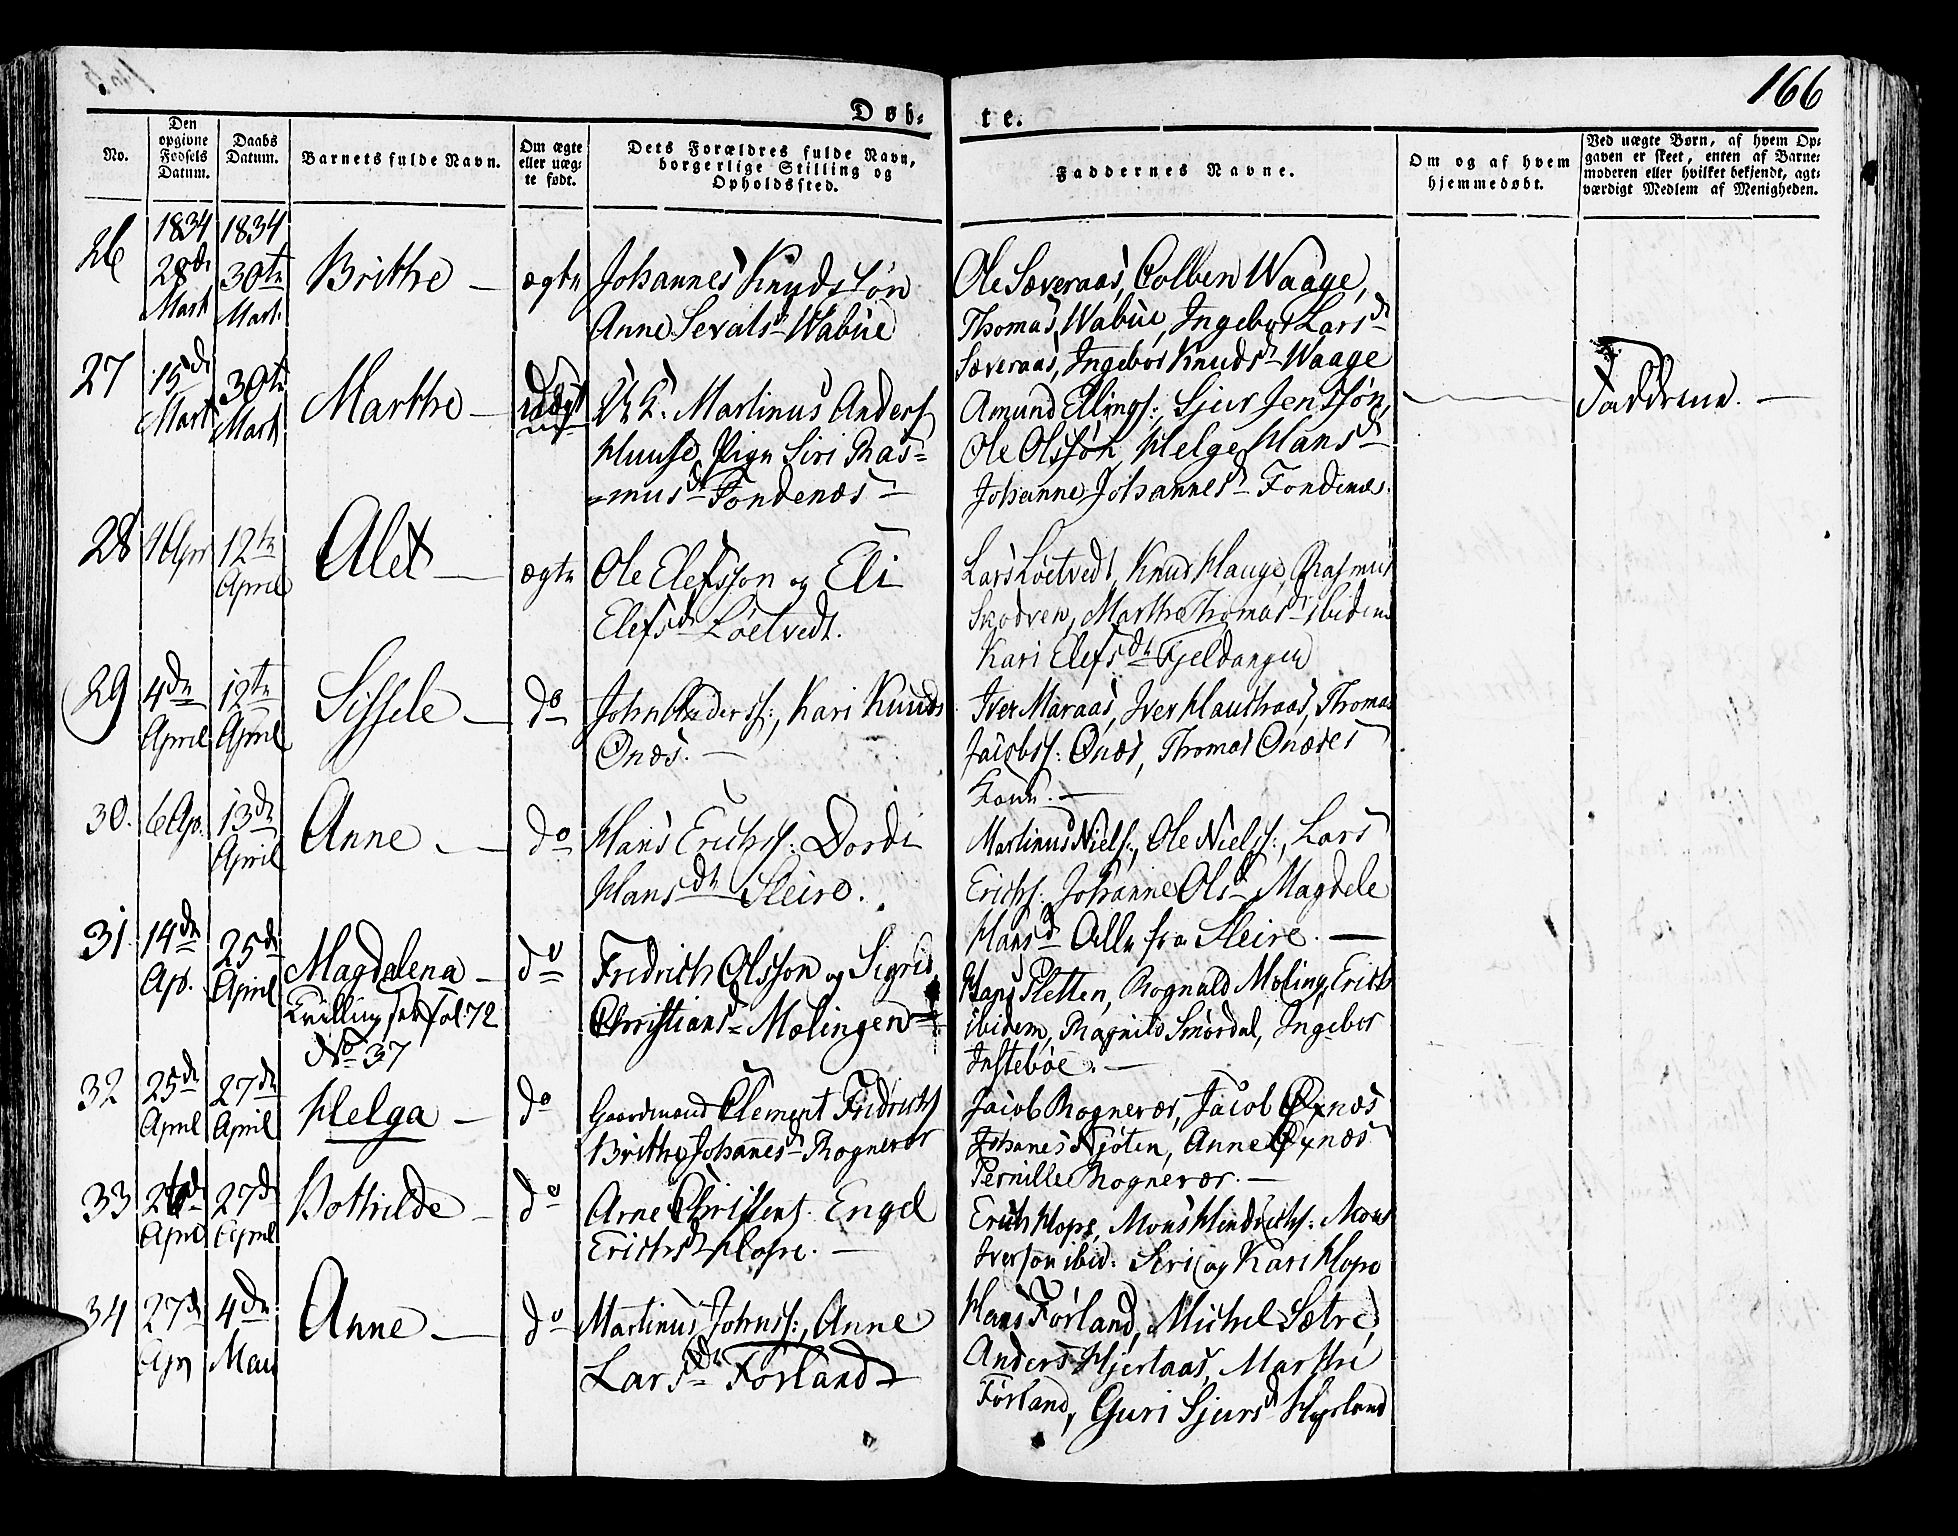 166
Døb-
te.
No.
Den opgivne Fødsels Datum.
Daabs Datum.
Barnets fulde Navn.
Om ægte eller uæg-te født.
Dets Forældres fulde Navn, borgerlige Stilling og Opholdssted.
Faddernes Navne.
Om og af hvem hjemmedøbt.
Ved uægte Børn, af hvem Op-
gaven er skeet, enten af Barne-
moderen eller hvilket bekjendt, agt-
værdigt Medlem af Menigheden.
1834 1834
26 28de Mart 30te Mart. Brithe — ægte
Johannes Knudssøn
Anne Sevalsd Wabüe
Ole Sæveraas, Colben Waage,
Thomas Wabüe, Ingebor Larsd
Sæveraas, Ingebor Knudsd Waage
27 15de Mart 30te Mart Marthe —
Martinus Anders
Huuse, Pige Siri Ras=
=musd Fondenæs —
Amund Ellings:, Sjur Jenssøn,
Ole Olssøn Helge Hansd
Johanne Johannesd Fondenæs.
Faddrene. —
28 Apr 12te April Alet — ægte
Ole Elefsson og Eli
Elefsdr Löetvedt.
Lars Löetvedt, Knud Hauge, Rasmus
Skodven, Marthe Thomasd ibidem
Kari Elefsdr Fjeldangen
29 4de April 12te April Sissele — do
John Anderss:, Kari Knuds
Onæs. —
Iver Maraas, Iver Haukaas, Thomas
Jacobss: Onæs, Thomas Onæses
Kone. —
30. 6 Ap. 13de April Anne — do
Hans Erichss: Dordi
Hansdr Sleire.
Martinus Niels:, Ole Nielss:, Lars
Erichs: Johanne Olsd Magdele
Hansd Alle fra Sleire. —
31. 14de Ap. 25de April Magdalena — do
Tvilling see fol: 72
No 37
Fredrich Olsson og Sigrid
Christiansd Mølingen
Hans Sletten, Rognald Moling, Erich
ibidem, Ragnild Smørdal, Ingebor
Instebøe. —
32 25de April 27de April Helga — do
Gaardmand Clement Fredrichs
Brithe Johannesd Rognevær
Jacob Rognevær, Jacob Øynæs
Johanes Njøten, Anne Øynæs
Pernille Rognevær. —
33 26de April 27de April Bothilde — do
Arne Christens. Engel
Erichsd Hope. —
Erich Hope, Mons Hindrichs: Mons
Iverson ibid: Siri og Kari Hope
34 27de Apr 4de Mai Anne — do
Martinus Johnss:, Anne
Larsdr Förland
Hans Førland, Michel Sætre,
Anders Hjertaas, Marthe
Førland, Guri Sjursd